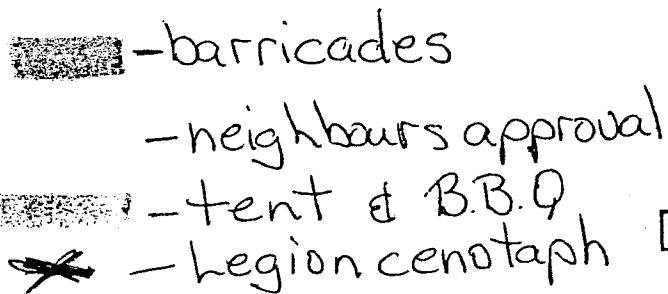 - barricades
- neighbours approval
- tent & B.B.Q
- Legion cenotaph